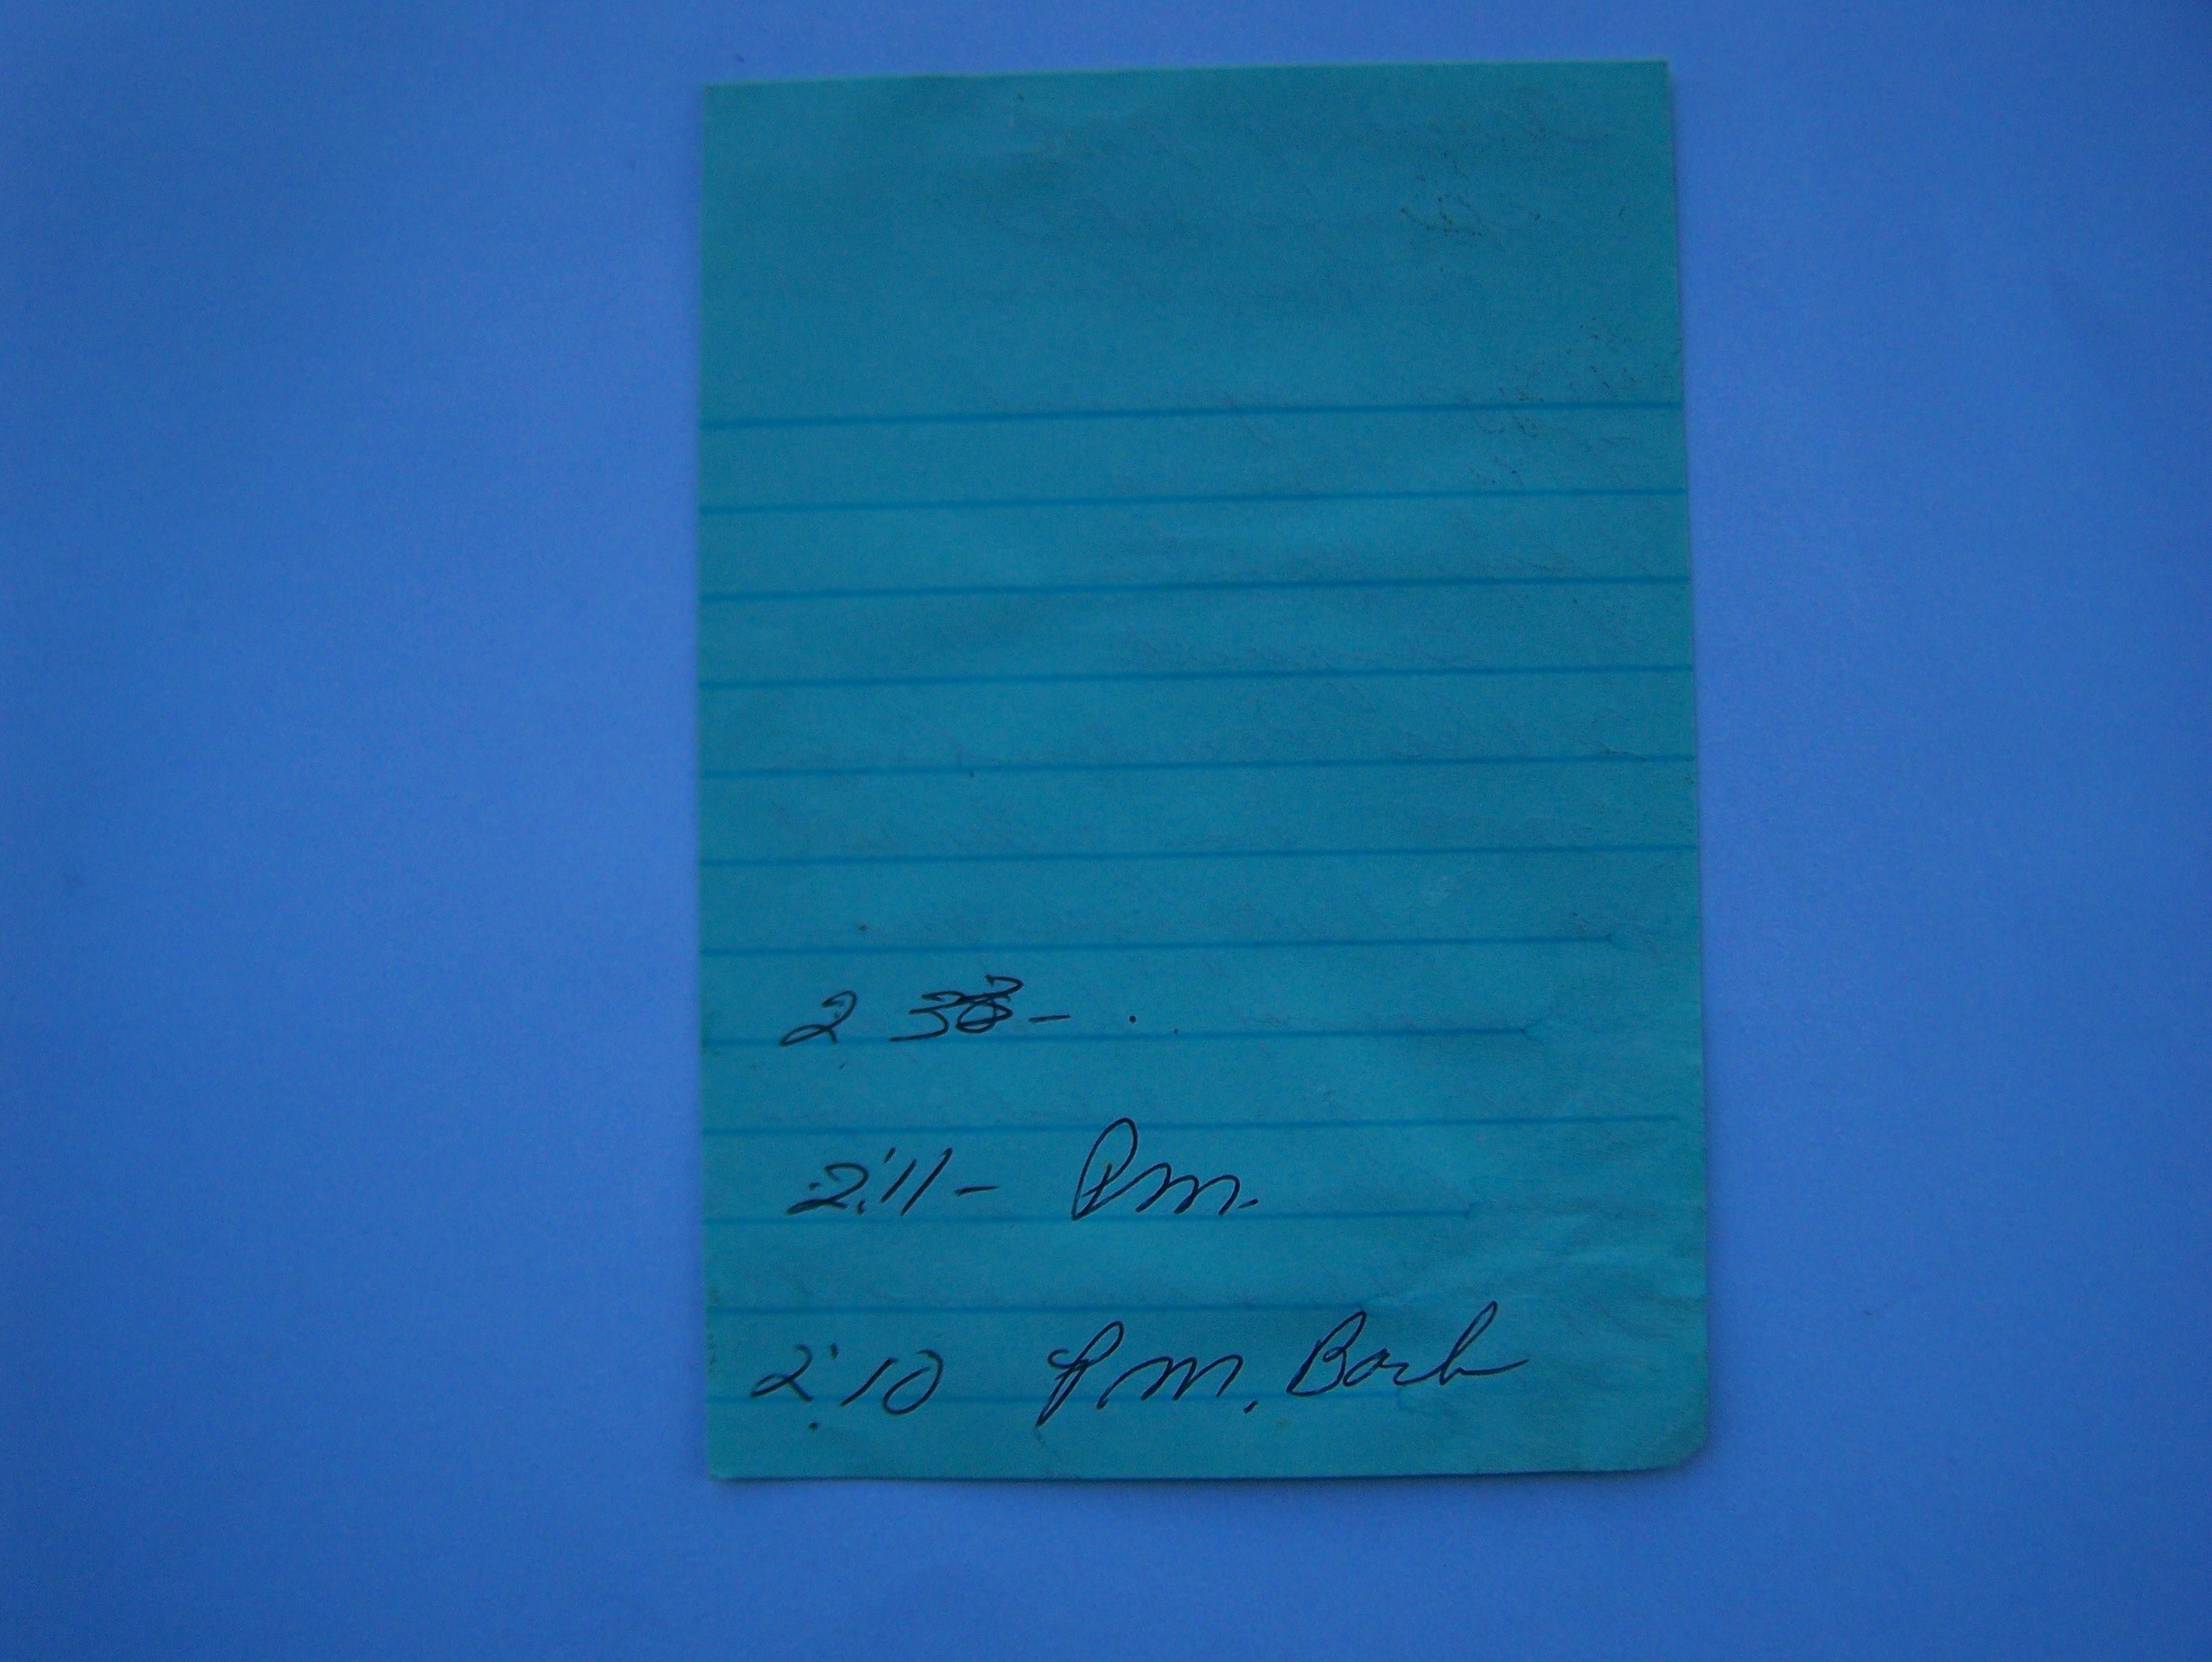 2 33 -
2:11 - Pm.
2:10 P.m. Barb